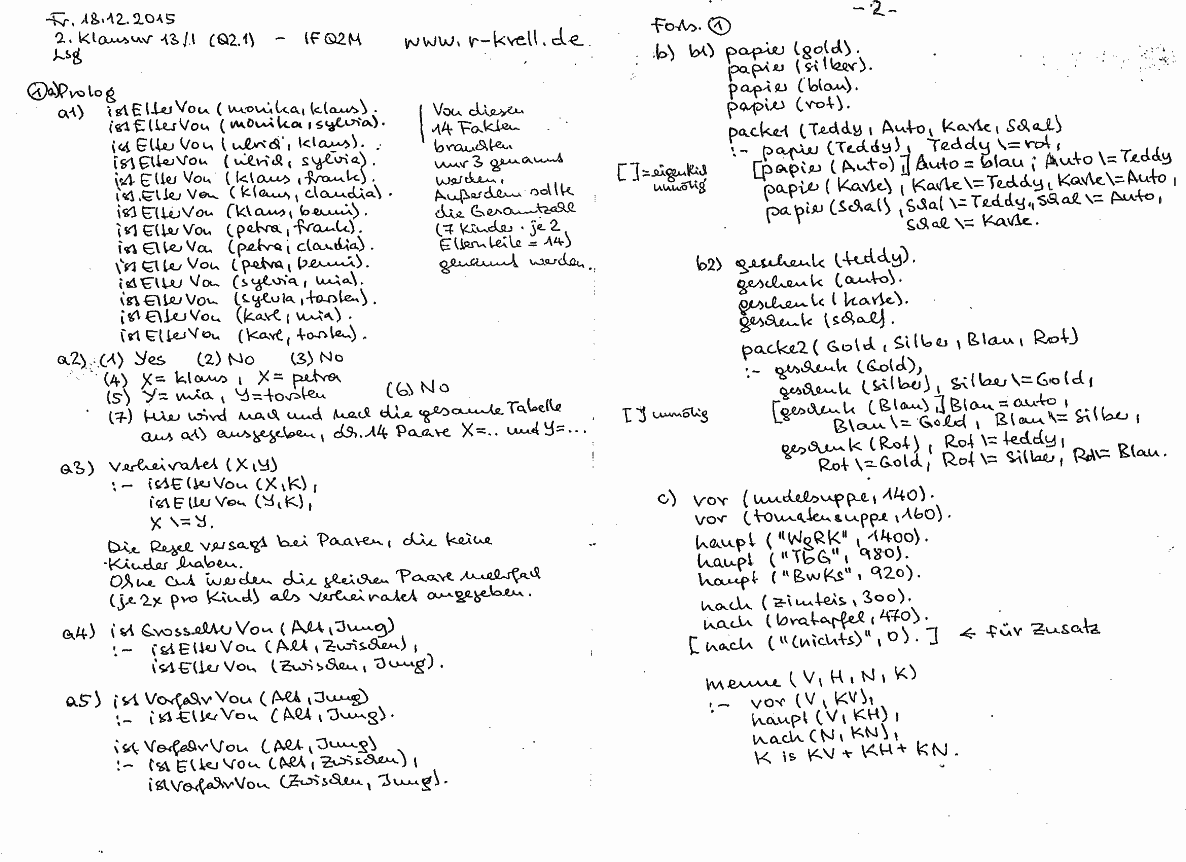 Fr. 18.12.2015
2. Klausur 13/I (Q2.1) - IFQ2M www.r-krell.de
Lsg
① a) Prolog
a1) istElterVon (monika, klaus).
istElterVon (monika, sylvia).
istElterVon (ulrich, klaus).
istElterVon (ulrich, sylvia).
istElterVon (klaus, frank).
istElterVon (klaus, claudia).
istElterVon (klaus, benni).
istElterVon (petra, frank).
istElterVon (petra, claudia).
istElterVon (petra, benni).
istElterVon (sylvia, mia).
istElterVon (sylvia, torsten).
istElterVon (karl, mia).
istElterVon (karl, torsten).
Von diesen
14 Fakten
brauchten
nur 3 genannt
werden.
Außerdem sollte
die Gesamtzahl
(7 Kinder · je 2
Elternteile = 14)
genannt werden.
a2) (1) Yes (2) No (3) No
(4) X = klaus, X = petra
(5) Y = mia, Y = torsten (6) No
(7) Hier wird nach und nach die gesamte Tabelle
aus a1) ausgegeben, d.h. 14 Paare X=.. und Y=...
a3) verheiratet (X,Y)
:- istElterVon (X,K),
istElterVon (Y,K),
X \= Y.
Die Regel versagt bei Paaren, die keine
Kinder haben.
Ohne Cut werden die gleichen Paare mehrfach
(je 2x pro Kind) als verheiratet angegeben.
a4) istGrosselterVon (Alt, Jung)
:- istElterVon (Alt, Zwischen),
istElterVon (Zwischen, Jung).
a5) istVorfahrVon (Alt, Jung)
:- istElterVon (Alt, Jung).
istVorfahrVon (Alt, Jung)
:- istElterVon (Alt, Zwischen),
istVorfahrVon (Zwischen, Jung).
- 2 -
Forts. ①
b) b1) papier (gold).
papier (silber).
papier (blau).
papier (rot).
packe1 (Teddy, Auto, Karte, Schal)
:- papier (Teddy), Teddy \= rot,
[papier (Auto),] Auto = blau; Auto \= Teddy
papier (Karte), Karte \= Teddy, Karte \= Auto,
papier (Schal), Schal \= Teddy, Schal \= Auto,
Schal \= Karte.
[ ] = eigentlich
unnötig
b2) geschenk (teddy).
geschenk (auto).
geschenk (karte).
geschenk (schal).
packe2 (Gold, Silber, Blau, Rot)
:- geschenk (Gold),
geschenk (Silber), Silber \= Gold,
[geschenk (Blau),] Blau = auto,
Blau \= Gold, Blau \= Silber,
geschenk (Rot), Rot \= teddy,
Rot \= Gold, Rot \= Silber, Rot \= Blau.
[ ] unnötig
c) vor (nudelsuppe, 140).
vor (tomatensuppe, 160).
haupt ("WgRK", 1400).
haupt ("TbG", 980).
haupt ("BwKs", 920).
nach (zimteis, 300).
nach (bratapfel, 470).
[nach ("(nichts)", 0).] ← für Zusatz
menue (V, H, N, K)
:- vor (V, KV),
haupt (V, KH),
nach (N, KN),
K is KV + KH + KN.